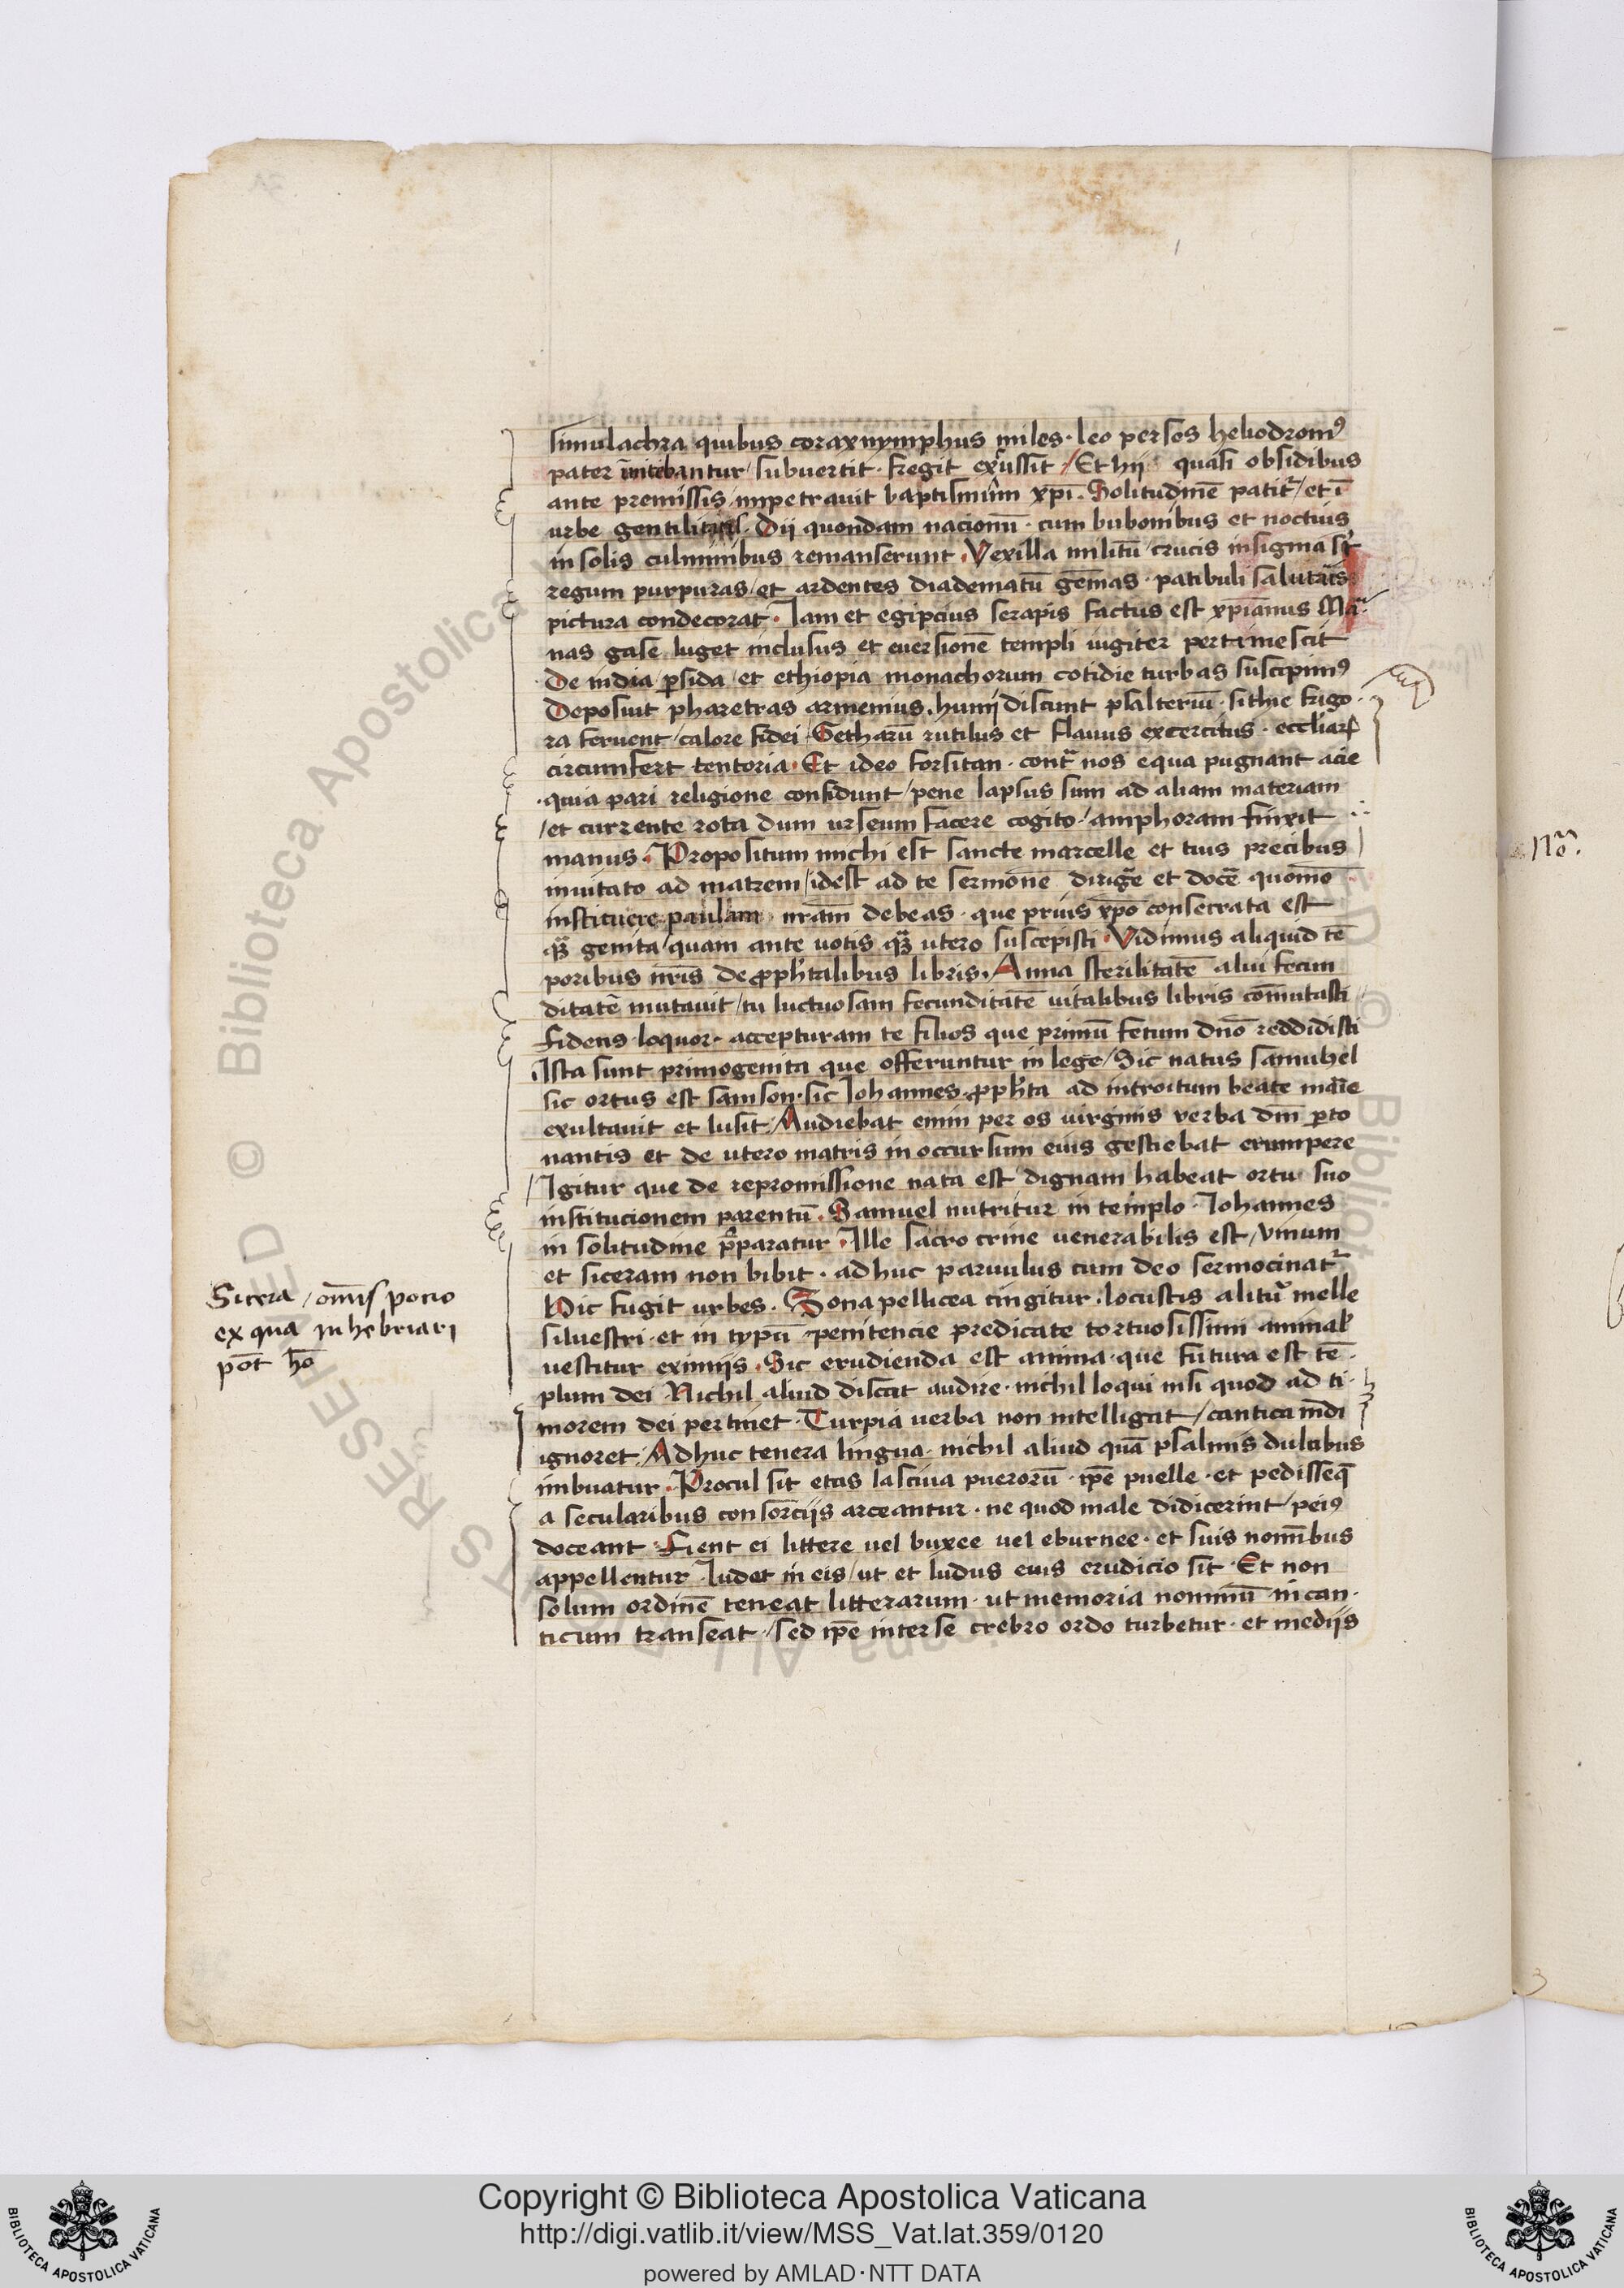 simulachra quibus corax nymphus miles · leo perses heliodromꝰ
pater intebantur / subuertit · fregit exussit / Et hij quasi obsidibus
ante premissis / impetrauit baptismum xp̄i · Solitudinē patitᷣ / et ī
urbe gentilitas · Dii quondam nacionū · cum bubonibus et noctuis
in solis culminibus remanserunt · Vexilla militū / crucis insignia sūt
regum purpuras / et ardentes diadematū gēmas · patibuli salutaris
pictura condecorat · Iam et egipcius serapis factus est xp̄ianus Mar
nas gase luget inclusus et euersionē templi iugiter pertimescit
De india p̱sida / et ethiopia monachorum cotidie turbas suscipimꝰ
Deposuit pharetras armenius · hunij discunt psalteriū · sithie frigo ·
ra feruent / calore fidei / Getharū rutilus et flauus excercitus · eccliarꝝ
circumfert tentoria · Et ideo forsitan · contᷓ nos equa pugnant acie
· quia pari religione confidunt / pene lapsus sum ad aliam materiam
/ et currente rota dum urseum facere cogito / amphoram finxit
manus · Propositum michi est sancte marcelle et tuis precibus
inuitato ad matrem / idest ad te sermonē dirigē et docē quomō
instituere paulam nrām debeas · que prius xp̄o consecrata est
qᷓ genita / quam ante uotis qᷓ utero suscepisti · Vidimus aliquid tē
poribus nr̄is de ꝓph̄talibus libris · Anna sterilitatē alui fecun
ditatē mutauit / tu luctuosam fecunditatē uitalibus libris cōmutasti
Fidens loquor · accepturam te filios que primū fetum dn̄o reddidisti
Ista sunt primogenita que offeruntur in lege / Sic natus samuhel
sic ortus est samson · sic Iohannes ꝓph̄ta ad introitum beate marie
exultauit et lusit / Audiebat enim per os uirginis verba dn̄i p̱to
nantis et de utero matris in occursum euis gestiebat erumpere
/ Igitur que de repromissione nata est / dignam habeat ortu suo
institucionem parentū · Samuel nutritur in templo · Iohannes
in solitudine p̄paratur · Ille sacro crine uenerabilis est / vinum
et siceram non bibit · adhuc paruulus cum deo sermocinatᷣ
Hic fugit urbes · Zona pellicea cingitur · locustis alitū melle
siluestri · et in typū penitencie predicate tortuosissimi animal̕
uestitur eximijs · Sic erudienda est anima · que futura est tē ·
plum dei Nichil aliud discat audire · nichil loqui nisi quod ad ti ·
morem dei pertinet · Turpia uerba non intelligat / cantica mūdi
ignoret / Adhuc tenera lingua · nichil aliud quā psalmis dulcibus
imbuatur · Procul sit etas lasciua puerorū · ip̄e puelle · et pedisseq̄
a secularibus consorcijs arceantur · ne quod male didicerint / peiꝰ
doceant · Fient ei littere uel buxee uel eburnee · et suis nomībus
appellentur Iudet in eis / ut et ludus euis erudicio sit · Et non
solum ordinē teneat litterarum · ut memoria nominū in can ·
ticum transeat · sed ip̄e inter se crebro ordo turbetur · et medijs
Sicera / om̄is pocio
ex qua inhebriari
pōt hō
No.
Copyright © Biblioteca Apostolica Vaticana
http://digi.vatlib.it/view/MSS_Vat.lat.359/0120
powered by AMLAD·NTT DATA
BIBLIOTECA APOSTOLICA VATICANA
BIBLIOTECA APOSTOLICA VATICANA